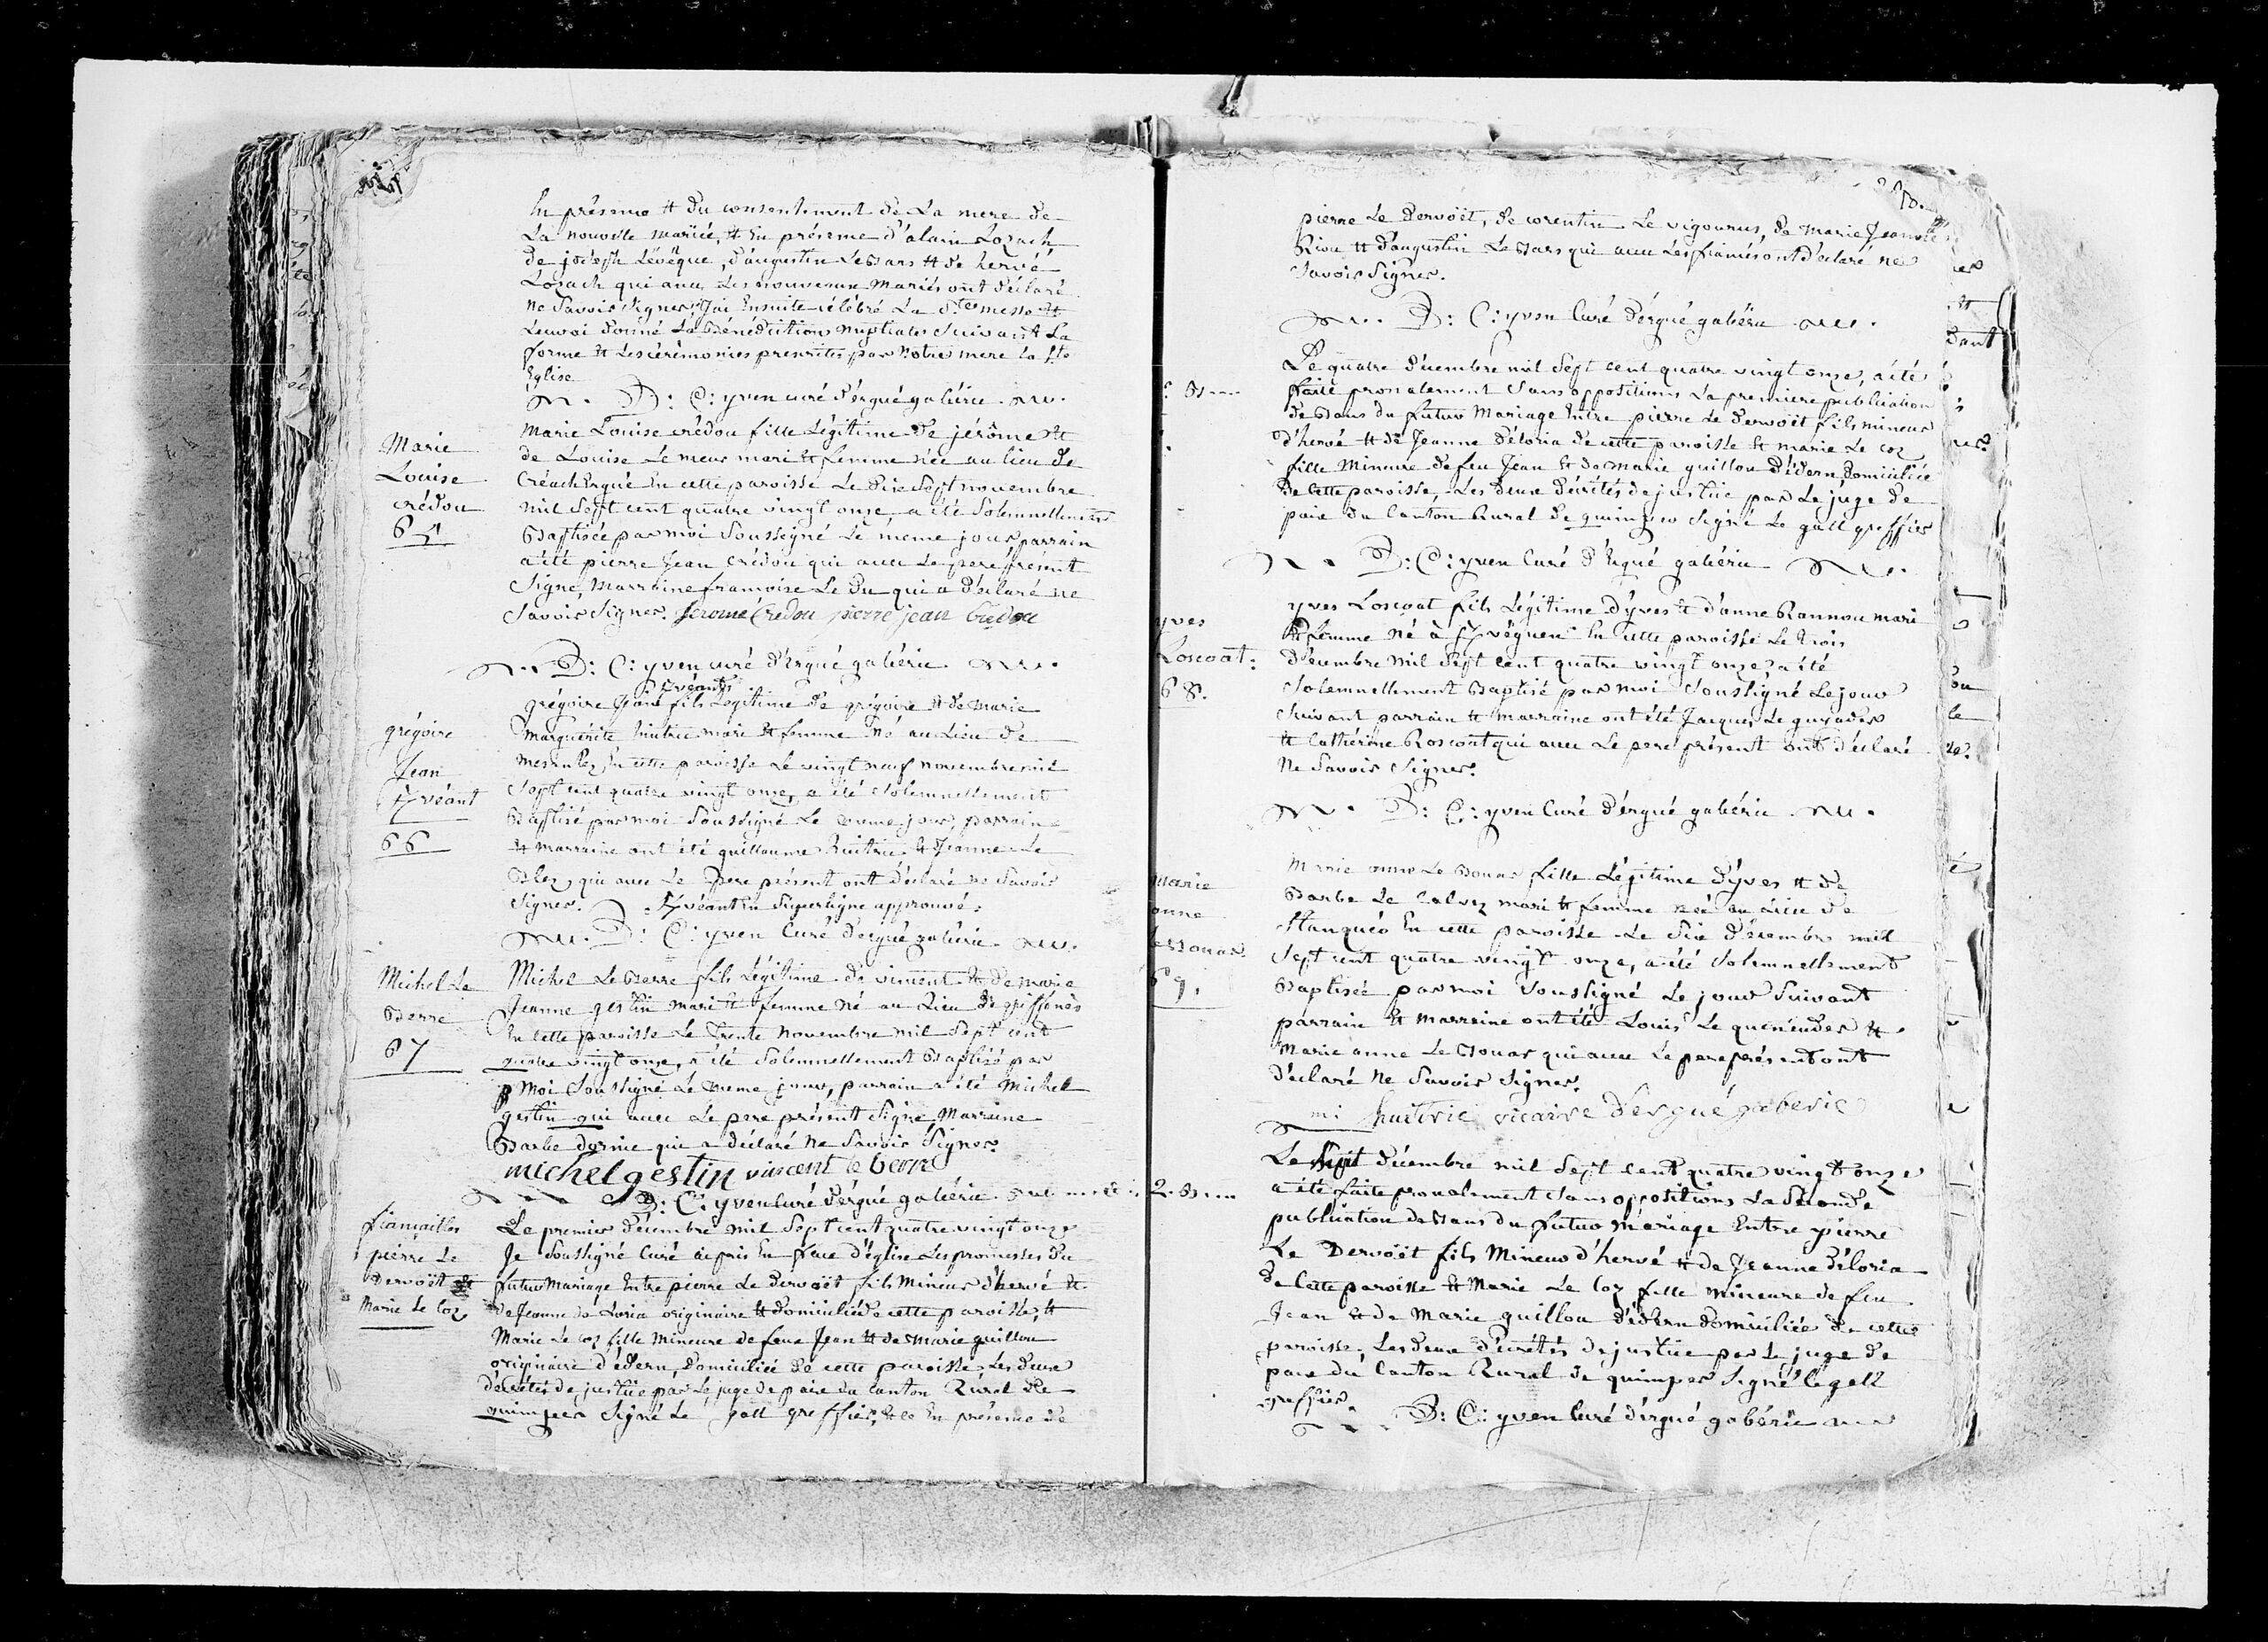 En présence et du consentement de la mere de
la nouvelle mariée, et En présence d'alain Lozach
de joseph Lévêque, d'augustin Le Bars et de hervé
Lozach qui avec les nouveaux mariés ont déclaré
ne Savoir signer. J'ai Ensuite célébré La Ste messe et
Leurai donné la Bénédiction nuptiale Suivant La
forme et les cérémonies prescrites par notre mere la Ste
Eglise
D: C: yven curé d'ergué gabéric
Marie
Louise
crédou
Marie Louise crédou fille Légitime de jérôme et
de Louise Le meur mari et femme née au lieu de
Créach Ergué En cette paroisse Le dix Sept novembre
mil Sept cent quatre vingt onze a été Solemnellement
Baptisée par moi Soussigné Le même jour parrain
a été pierre Jean Crédou qui avec Le pere présent
Signe, Marraine françoise Le Du qui a déclaré ne
Savoir Signer. Jerome Credou pierre jean Credou
D: C: yven curé d'Ergué gabéric
grégoire
Jean
Kvéant
66
Kvéant
grégoire Jean fils Légitime de grégoire et de Marie
Marguérite huitric mari et femme né au Lieu de
En cette paroisse Le vingt neuf novembre mil
Sept cent quatre vingt onze, a été Solemnellement
Baptisé par moi Soussigné Le même jour parrain
et marraine ont été guillaume huitric et Jeanne Le
qui avec Le pere présent ont déclaré ne Savoir
Signer. Kvéant En Superligne approuvé.
D: C: yven Curé d'ergué gabéric
Michel Le
Berre
67
Michel Le Berre fils Légitime de vincent et de marie
Jeanne gestin mari et femme né au Lieu de griffonès
En Cette paroisse Le trente novembre mil Sept cent
quatre vingt onze, a été Solemnellement Baptisé par
Moi Soussigné Le même jour, parrain a été Michel
gestin qui avec Le pere présent Signe, Marraine
Barbe qui a déclaré ne Savoir Signer.
michel gestin vincent le berre
D: C: yven curé d'ergué gabéric
fiançailles
pierre Le
Dervoët et
Marie Le Coz
Le premier décembre mil Sept cent quatre vingt onze
Je Soussigné Curé ai pris En face d'église Les promesses du
futur Mariage Entre pierre Le Dervoët fils Mineur d'hervé et
de Jeanne de Loria originaire et domicilié de cette paroisse, et
Marie Le Coz fille Mineure de feue Jean et de Marie guillou
originaire d'édern, domiciliée de cette paroisse, Les deux
décrétés de justice par Le juge de paix du Canton Rural de
quimper Signé Le gall greffier, et ce En présence de
pierre Le Dervoët, de corentin Le vigourus, de Marie Jeanne
Riou et d'augustin Le Bars qui avec Les fiancés ont déclaré ne
Savoir Signer.
D: C: yven Curé d'ergué gabéric
Le quatre décembre mil Sept cent quatre vingt onze, a été
faite pronalement Sans oppositions La premiere publication
de Bans du futur Mariage Entre pierre Le Dervoët fils mineur
d'hervé et de Jeanne déloria de cette paroisse et Marie Le Coz
fille Mineure de feu Jean et de Marie guillou d'édern, domiciliée
de Cette paroisse, Les deux décrétés de justice par Le juge de
paix du Canton Rural de quimper Signé Le gall greffier
D: C: yven Curé d'Ergué gabéric
yves
Loscoat:
68.
yves Loscoat fils Légitime d'yves et d'anne Rannou mari
et femme né à Kvéguen En cette paroisse Le trois
décembre mil Sept cent quatre vingt onze, a été
Solemnellement Baptisé par moi Soussigné Le jour
Suivant parrain et marraine ont été Jacques Le guyader
et Cathérine Roscoat qui avec Le pere présent ont déclaré
Ne Savoir Signer.
D: C: yven Curé d'ergué gabéric
Marie
anne
Le Bouar
69.
Marie anne Le Bouar fille Légitime d'yves et de
Barbe Le Calvez mari et femme née au Lieu de
Stanquéo En cette paroisse Le Six décembre mil
Sept cent quatre vingt onze, a été Solemnellement
Baptisée par moi Soussigné Le jour Suivant
parrain et marraine ont été Louis Le quénéuder et
Marie anne Le Bouar qui avec Le pere présent ont
déclaré Ne Savoir Signer.
mi huitric vicaire d'ergué gaberic
2. B
Le Sept décembre mil Sept cent quatre vingt onze
a été faite pronalement Sans oppositions La Seconde
publication de Bans du futur Mariage Entre pierre
Le Dervoët fils Mineur d'hervé et de Jeanne déloria
de Cette paroisse et Marie Le Coz fille mineure de feu
Jean et de Marie guillou d'édern domiciliée de cette
paroisse. Les deux décrétés de justice par Le juge de
paix du Canton Rural de quimper Signé le gall
greffier.
D: C: yven Curé d'ergué gabéric